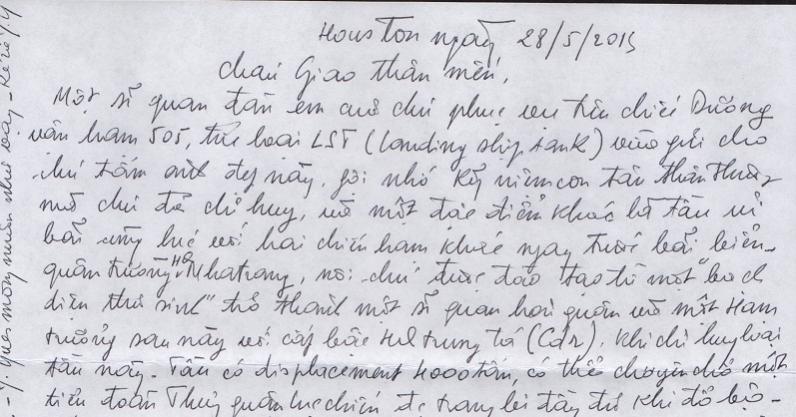 Houston ngày 28/5/2015
cháu Giao thân mến,
Một sĩ quan đàn em cũ chú phục vụ trên chiếc Dương
vận hạm 505, thuộc loại LST (Landing ship tank) vừa gửi cho
chú tấm ảnh đẹp này, gợi nhớ kỷ niệm con tàu thân thương
mà chú đã chỉ huy, và một đặc điểm khác là tàu ủi
bãi cùng lúc với hai chiến hạm khác ngay trước bãi biển
quân trường HQ Nhatrang, nơi chú được đào tạo từ một "bạch
diện thư sinh" trở thành một sĩ quan hải quân và một Hạm
trưởng sau này với cấp bậc HQ trung tá (Cdr), khi chỉ huy loại
tàu này. Tàu có displacement 4000 tấn, có thể chuyên chở một
tiểu đoàn Thủy quân lục chiến được trang bị đầy đủ khi đổ bộ-